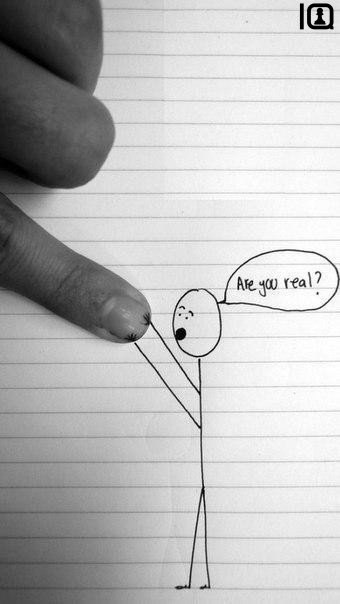 IQ
Are you real?